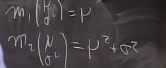 m₁(μ σ²) = μ
m₂(μ σ²) = μ² + σ²